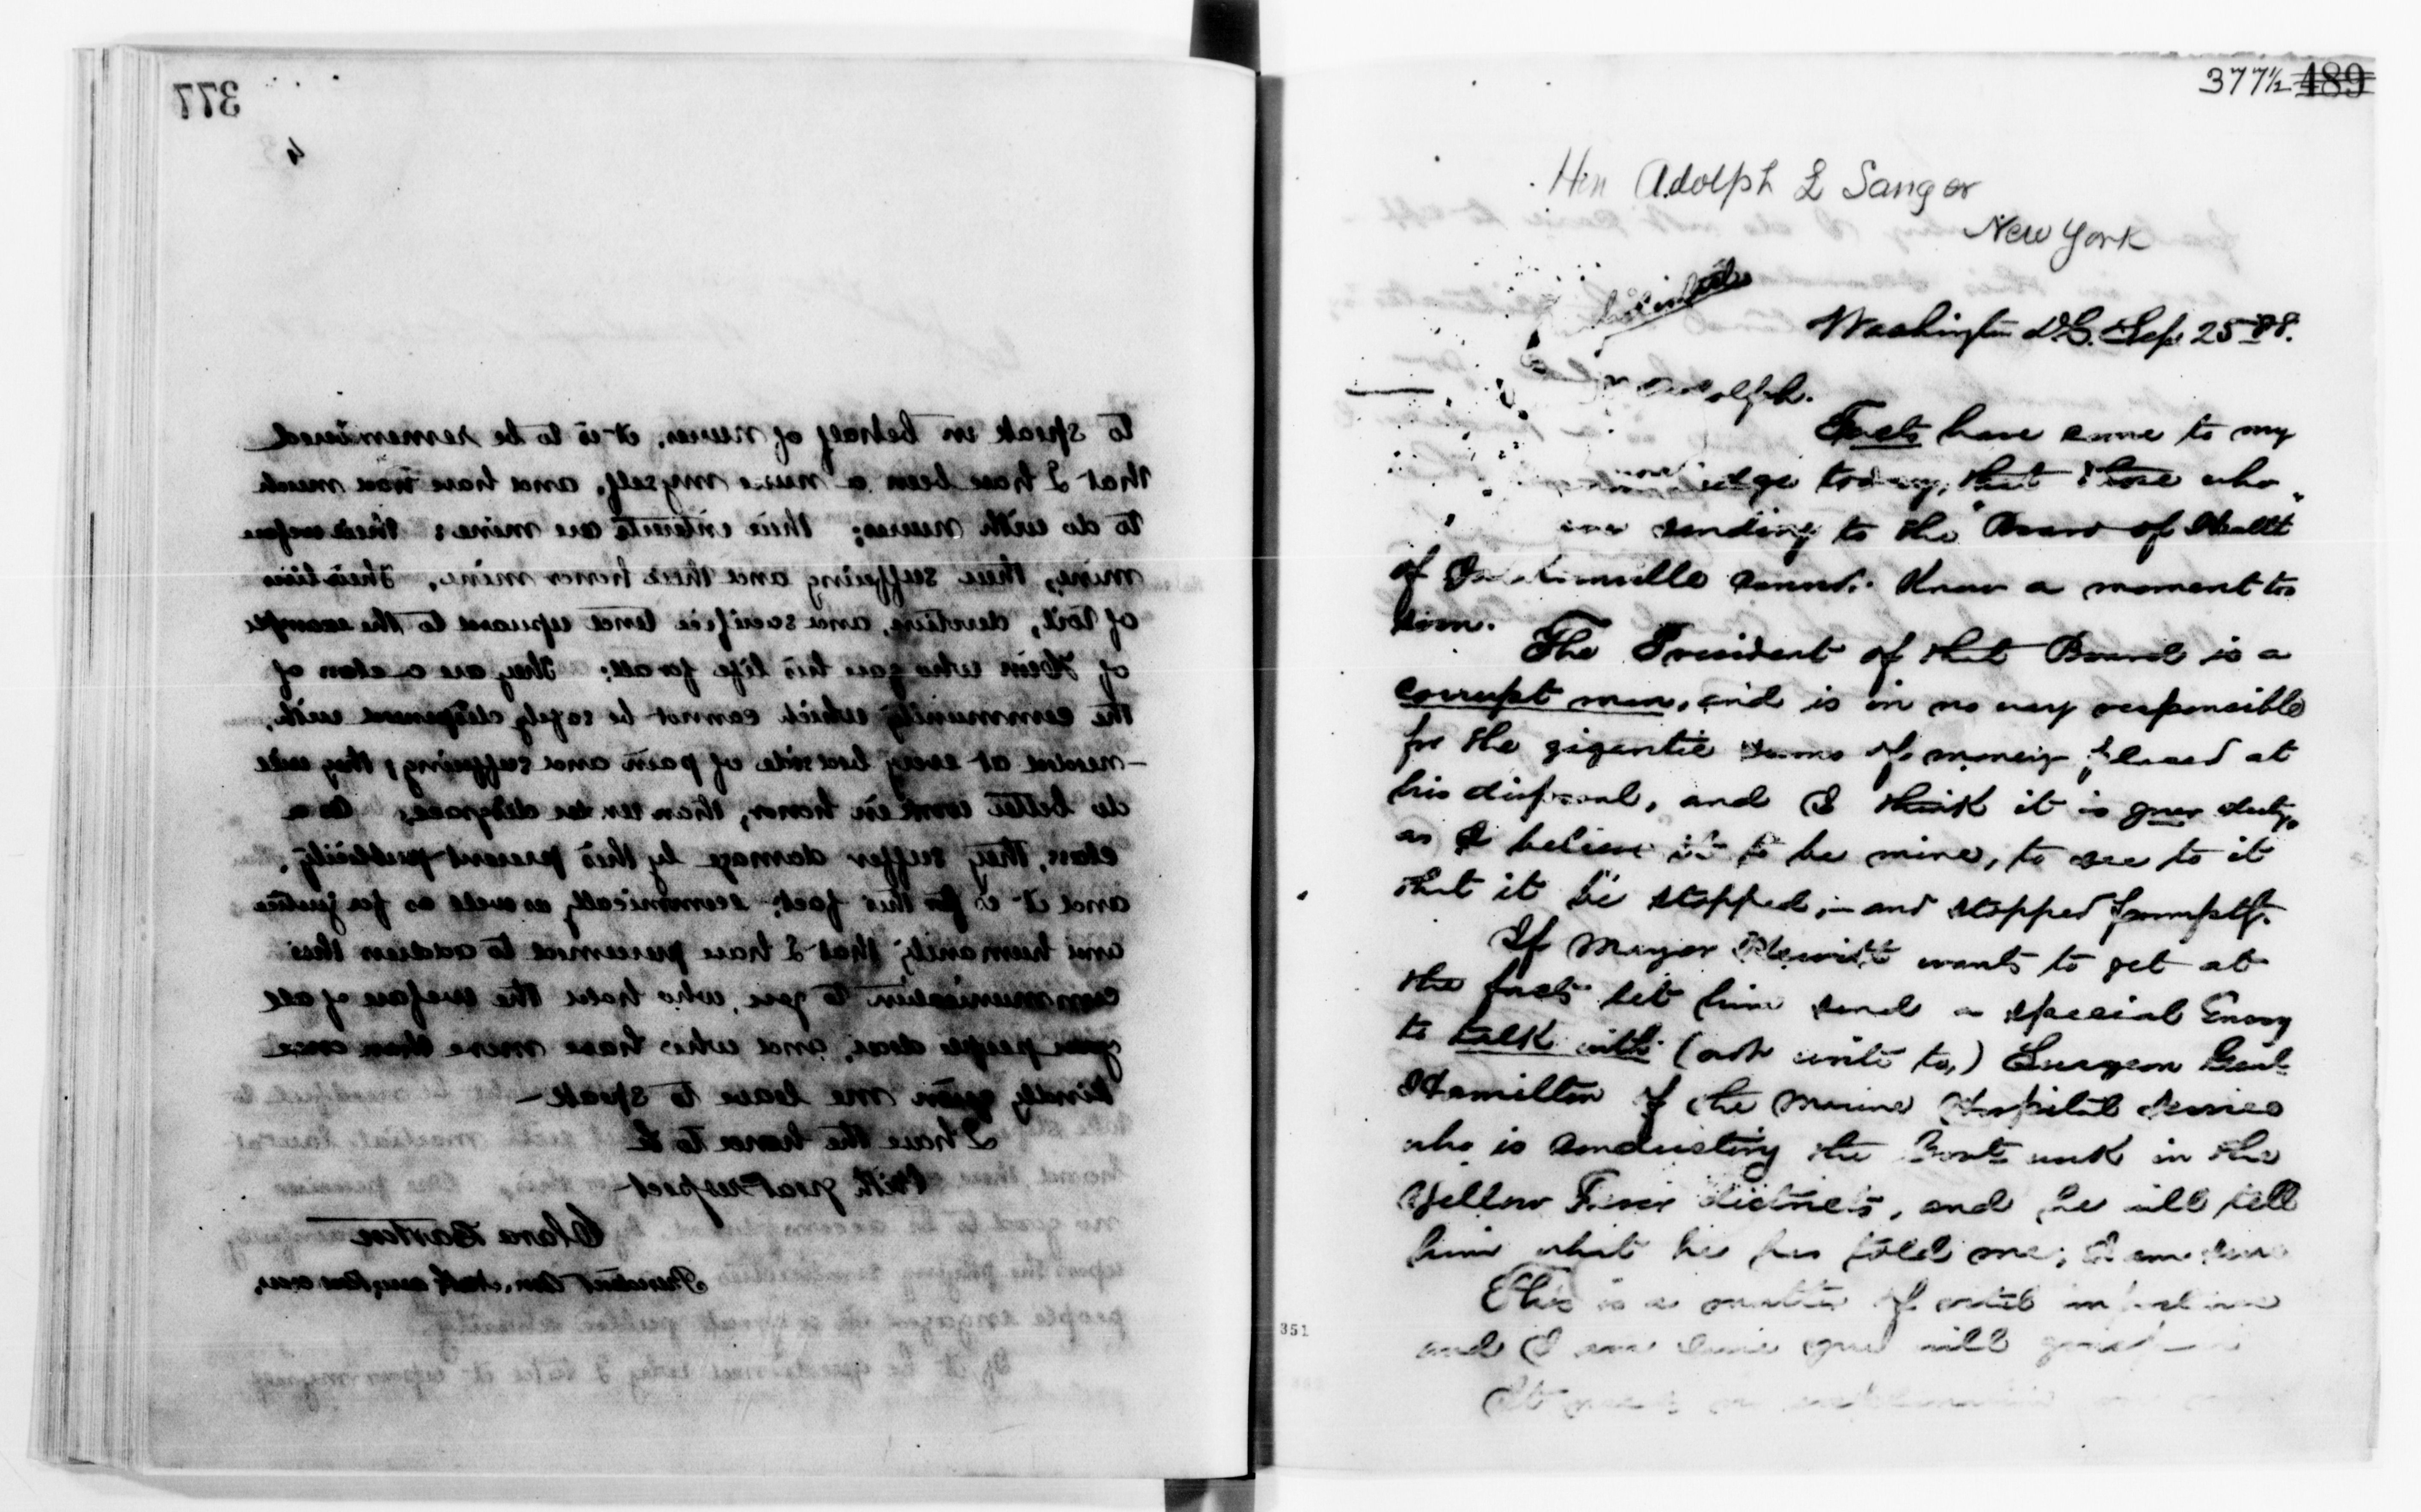 377
4
to speak in behalf of nurses, it is to be remembered
that I have been a nurse myself, and have had much
to do with nurses; their interests are mine: their welfare
mine, their suffering and their honor mine. Their lives
of toil, devotion, and sacrifice tend upward to the example
of Him who gave his life for all: they are a class of
the community which cannot be safely dispensed with,
needed at every bedside of pain and suffering; they will
do better work in honor, than in disgrace; as a
class, they suffer damage by this present publicity,
and it is for this fact, economically as well as for justice
and humanity that I have presumed to address this
communication to you, who have the welfare of all
your people dear, and who have more than once
kindly given me leave to speak—
I have the honor to be
With great respect
Clara Barton
President Am.
377½ 489
Hon Adolph L Sanger
New York
Washington D.C. Sep. 25 '88.
Adolph.
Facts have come to my
knowledge today, that those who
are sending to the "Board of Health"
of Jacksonville cannot know a moment too
soon.
The President of that Board is a
corrupt man, and is in no way responsible
for the gigantic sums of money placed at
his disposal, and I think it is your duty,
as I believe it to be mine, to see to it
that it be stopped,— and stopped promptly.
If Mayor Hewitt wants to get at
the facts let him send a special Envoy
to talk with (not write to,) Surgeon Genl
Hamilton of the Marine Hospital Service
who is conducting the Govt work in the
Yellow Fever districts, and he will tell
him what he has told me; I am sure
This is a matter of vital importance
and I am sure you will
It
351